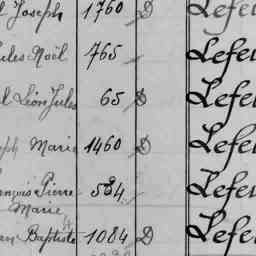 Joseph 1760 D Lefe
ules Noël 765 Lefe
l Léon Jules 65 D Lefe
ph Marie 1460 D Lefe
ançois Pierre 584 Lefe
Marie
an Baptiste 1084 D Lefe